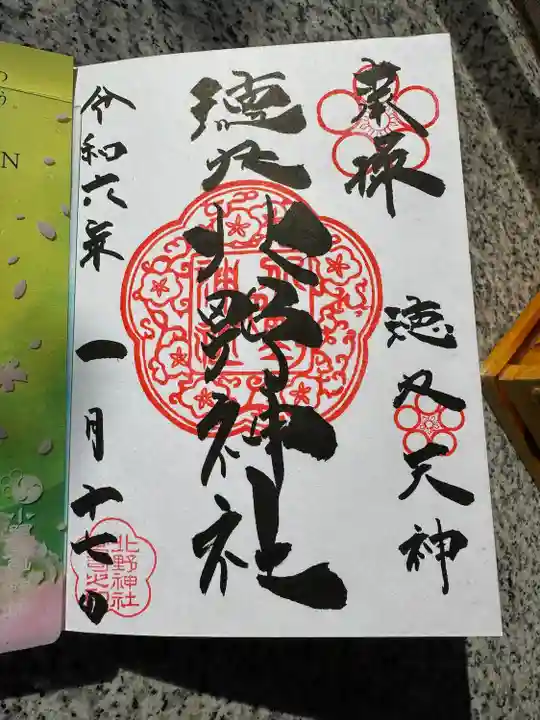 奉拝
徳丸天神
徳丸
北野神社
令和六年
一月十七日
北野神社
つ
う
N